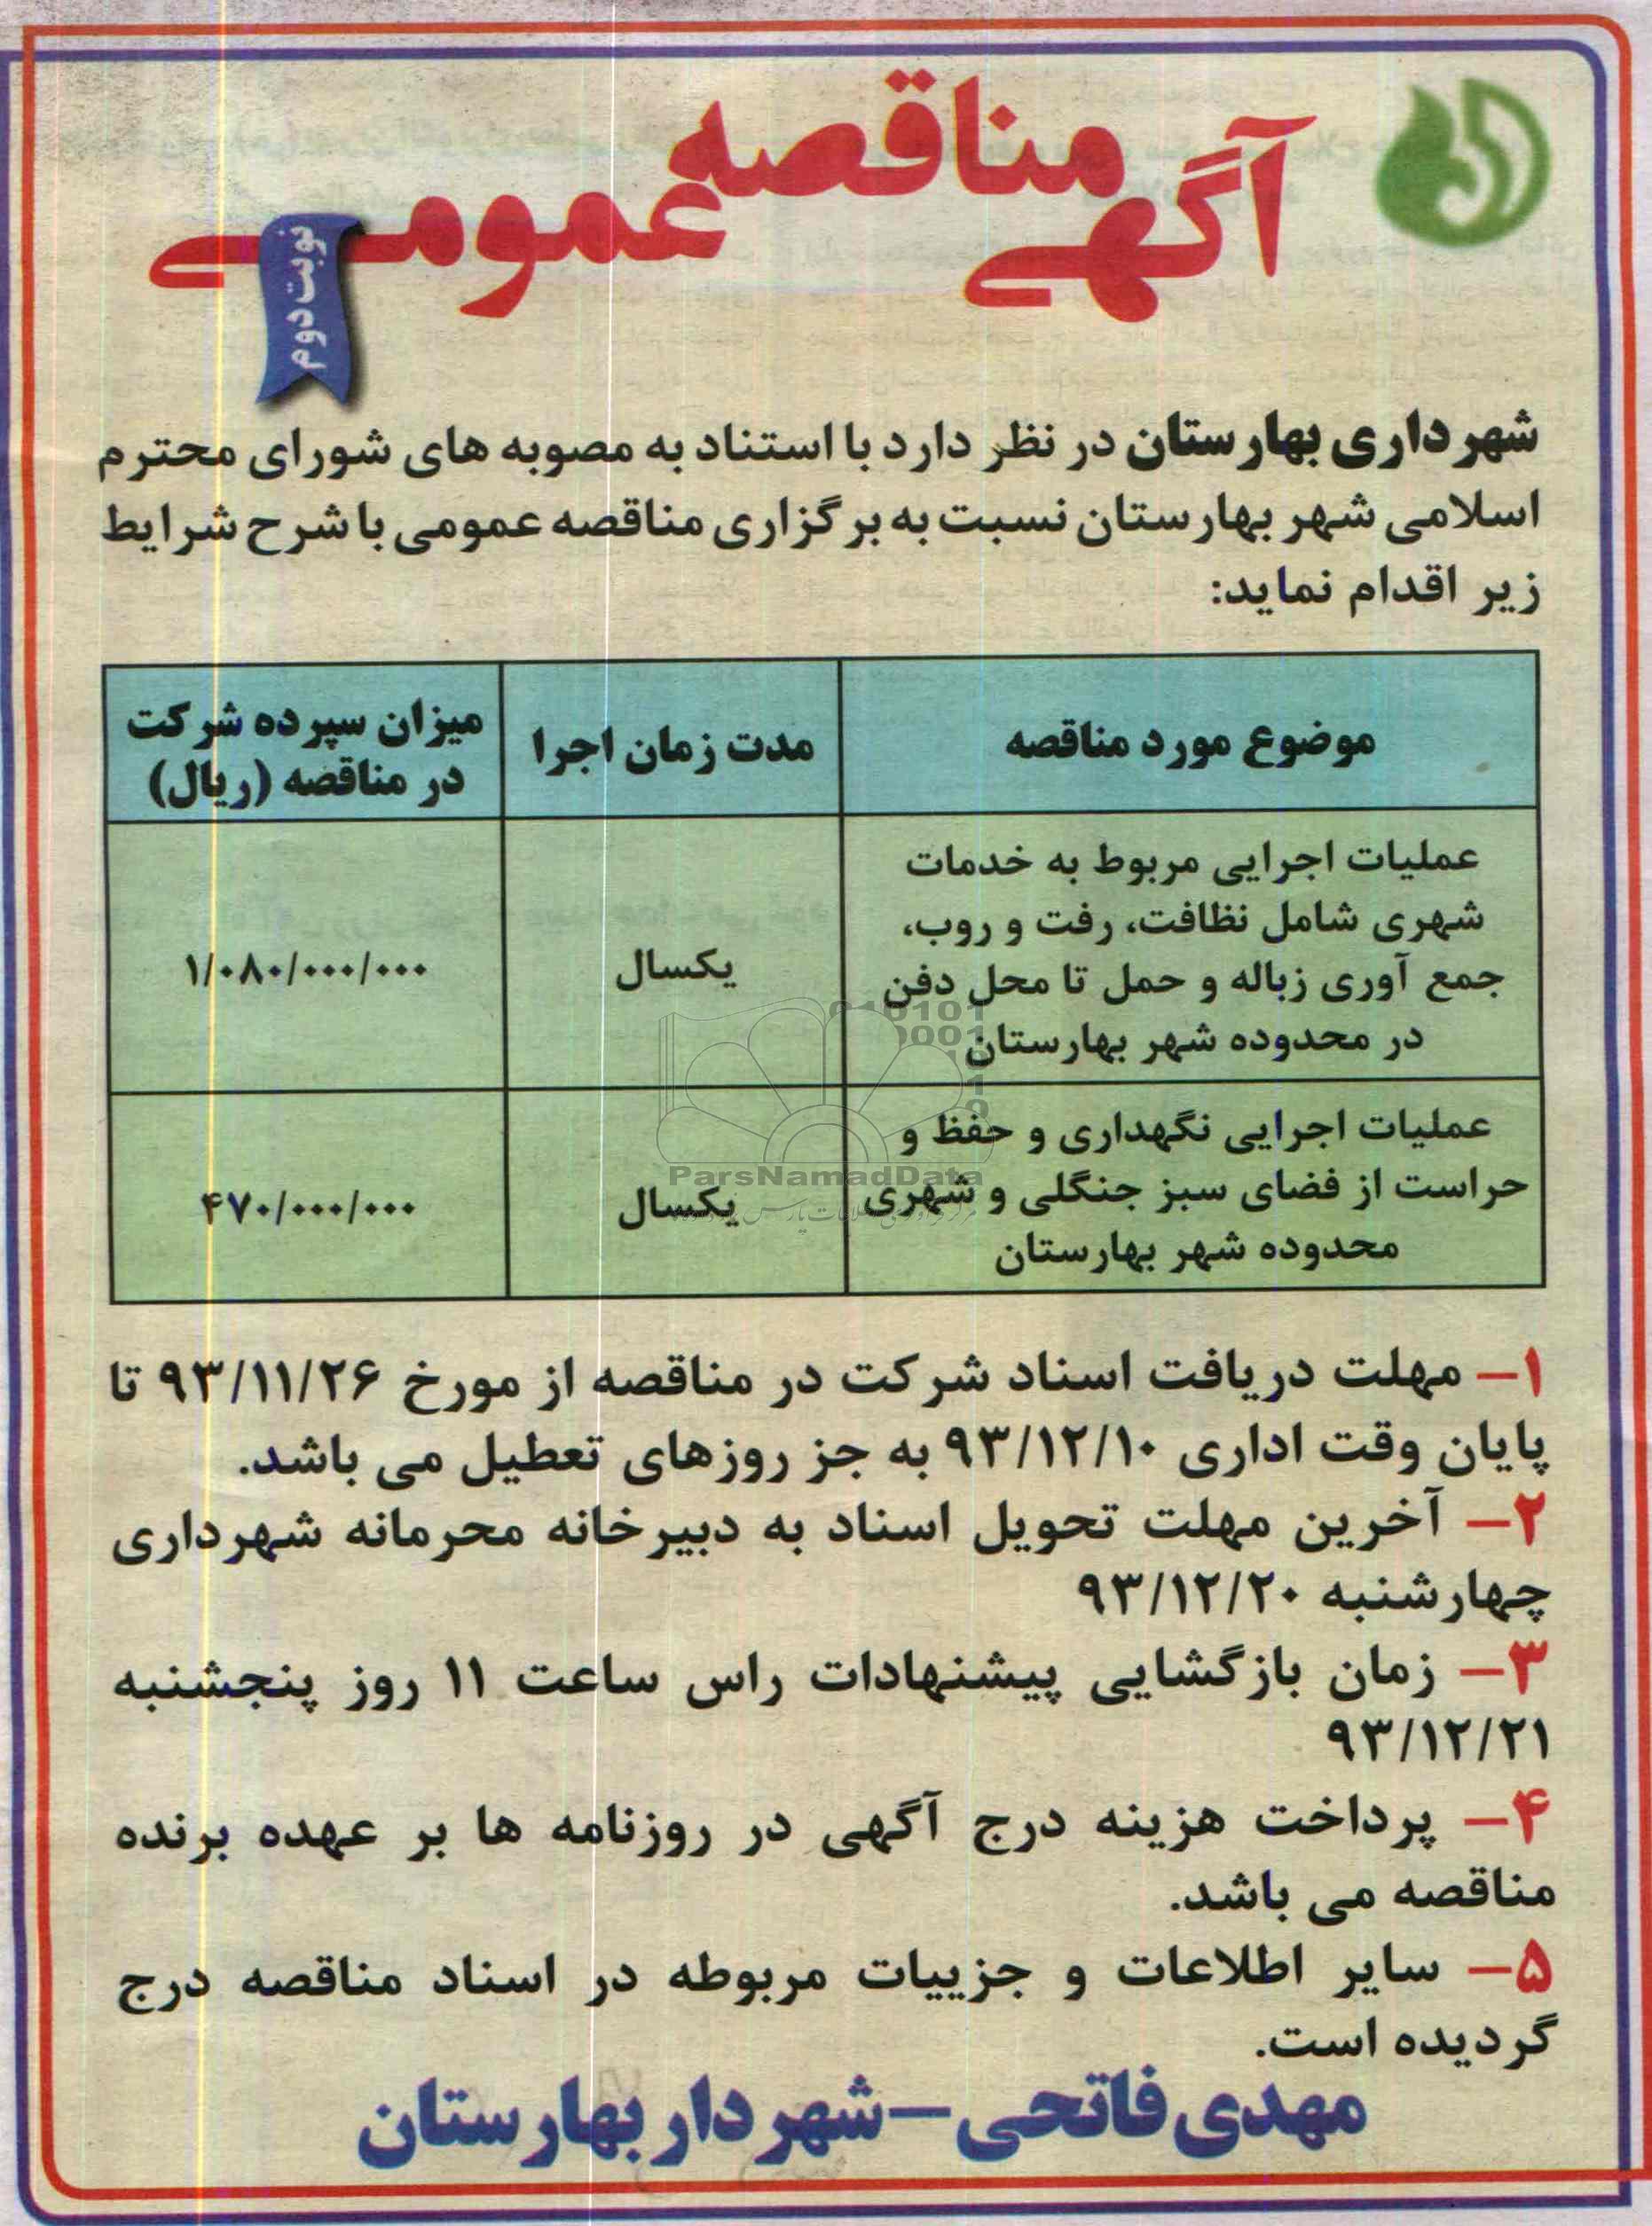 آگهی مناقصه عمومی
نوبت دوم
شهرداری بهارستان در نظر دارد با استناد به مصوبه های شورای محترم
اسلامی شهر بهارستان نسبت به برگزاری مناقصه عمومی با شرح شرایط
زیر اقدام نماید:
موضوع مورد مناقصه
مدت زمان اجرا
میزان سپرده شرکت
در مناقصه (ریال)
عملیات اجرایی مربوط به خدمات
شهری شامل نظافت، رفت و روب،
جمع آوری زباله و حمل تا محل دفن
در محدوده شهر بهارستان
یکسال
۱/۰۸۰/۰۰۰/۰۰۰
عملیات اجرایی نگهداری و حفظ و
حراست از فضای سبز جنگلی و شهری
محدوده شهر بهارستان
یکسال
۴۷۰/۰۰۰/۰۰۰
ParsNamadData
۱– مهلت دریافت اسناد شرکت در مناقصه از مورخ ۹۳/۱۱/۲۶ تا
پایان وقت اداری ۹۳/۱۲/۱۰ به جز روزهای تعطیل می باشد.
۲– آخرین مهلت تحویل اسناد به دبیرخانه محرمانه شهرداری
چهارشنبه ۹۳/۱۲/۲۰
۳– زمان بازگشایی پیشنهادات راس ساعت ۱۱ روز پنجشنبه
۹۳/۱۲/۲۱
۴– پرداخت هزینه درج آگهی در روزنامه ها بر عهده برنده
مناقصه می باشد.
۵– سایر اطلاعات و جزییات مربوطه در اسناد مناقصه درج
گردیده است.
مهدی فاتحی – شهردار بهارستان